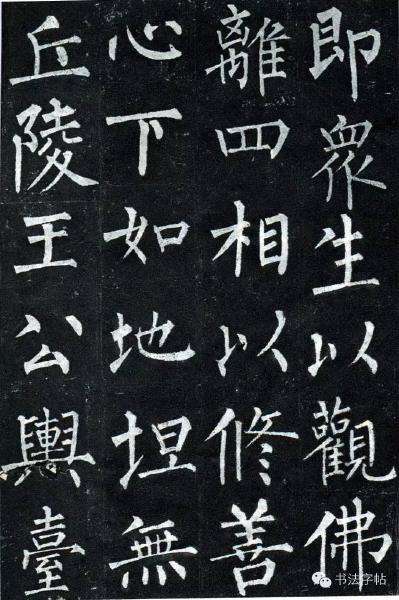 即衆生以觀佛
離四相以修善
心下如地坦無
丘陵王公輿臺
书法字帖